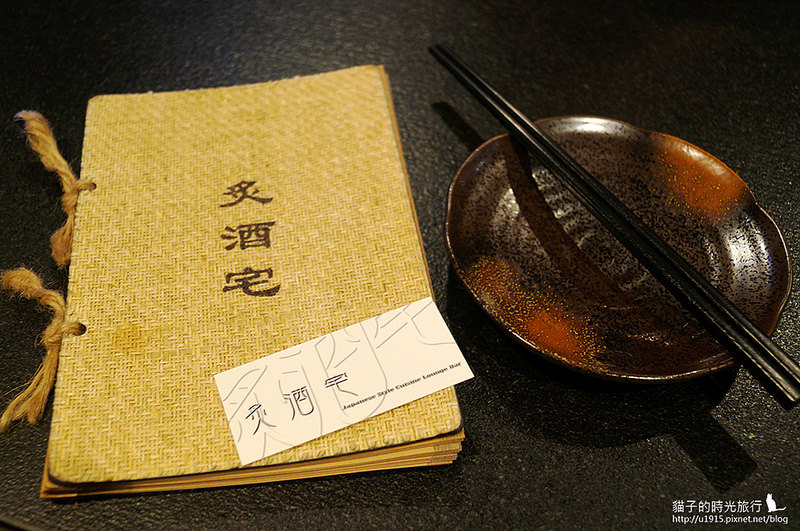 炙
酒
宅
炙酒宅
Japanese Style Cuisine Lounge Bar
貓子的時光旅行
http://u1915.pixnet.net/blog